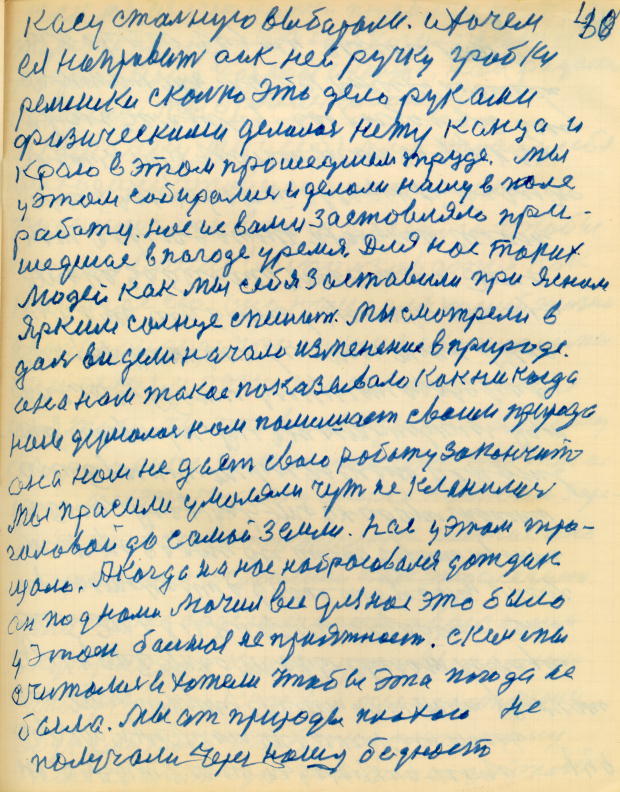 касу стальную выбарали. и точем
ей направит а к ней ручку грабки
ремошки сколко это дело руками
физическими делалоя нету канца и
краю в этом прошедшем труде. мы
у этом собиралися и делали нашу в поле
работу. нас и с вами заставляло при-
шедшае в погоде уремя. Для нас таких
людей как мы себя заставили при ясном
ярким солнце спешит. мы смотрели в
дал видели начало изменение в природе.
она нам такое показывало как никогда
нам думалоя нам помешает своим природа
она нам не даст свою работу закончить
мы прасили умоляли чут не кланялися
галовой до самой земли. нас у этом тро-
щало. А когда на нас набрасовалея дождик
он под нами мочил все для нас это было
у этом балшая не приятност. с кем мы
считалися и хотели чтобы эта погода не
была. мы от природы плохого не
получали через нашу бедност